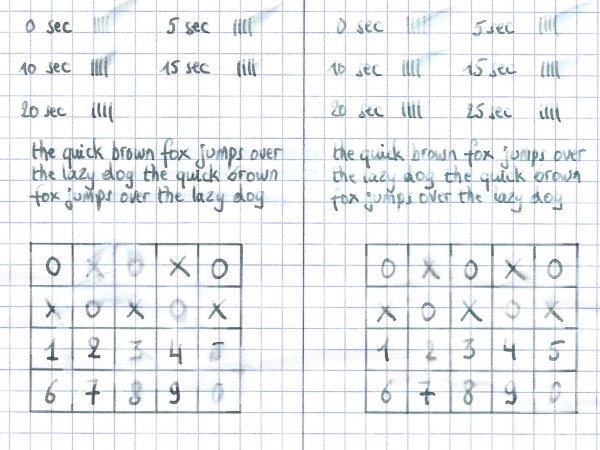 0 sec |||| 5 sec ||||
10 sec |||| 15 sec ||||
20 sec ||||
the quick brown fox jumps over
the lazy dog the quick brown
fox jumps over the lazy dog
O X O X O
X O X O X
1 2 3 4 5
6 7 8 9 0
0 sec |||| 5 sec ||||
10 sec |||| 15 sec ||||
20 sec |||| 25 sec ||||
the quick brown fox jumps over
the lazy dog the quick brown
fox jumps over the lazy dog
O X O X O
X O X O X
1 2 3 4 5
6 7 8 9 0